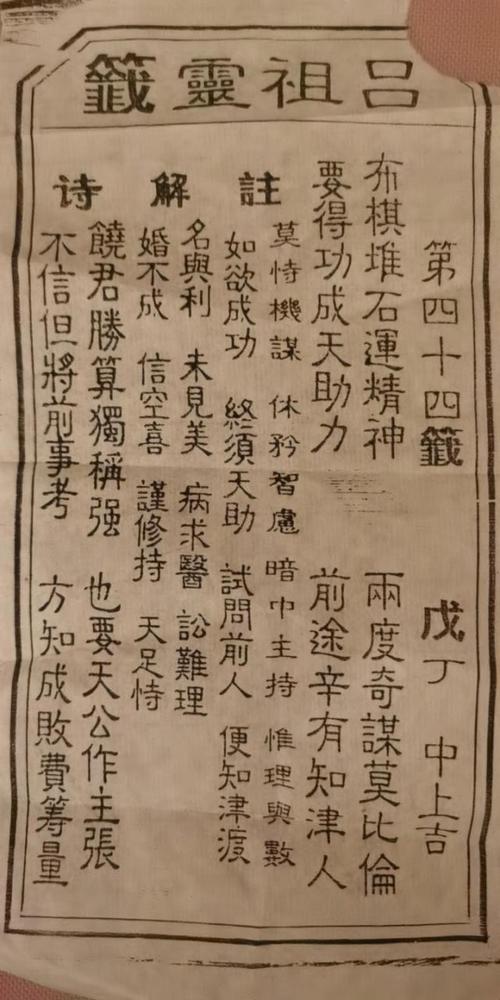 呂祖靈籤
第四十四籤 戊丁 中上吉
布棋堆石運精神 兩度奇謀莫比倫
要得功成天助力 前途辛有知津人
註
莫恃機謀 休矜智慮 暗中主持 惟理與數
如欲成功 終須天助 試問前人 便知津渡
解
名與利 未見美 病求醫 訟難理
婚不成 信空喜 謹修持 天足恃
诗
饒君勝算獨稱强 也要天公作主張
不信但將前事考 方知成敗費籌量